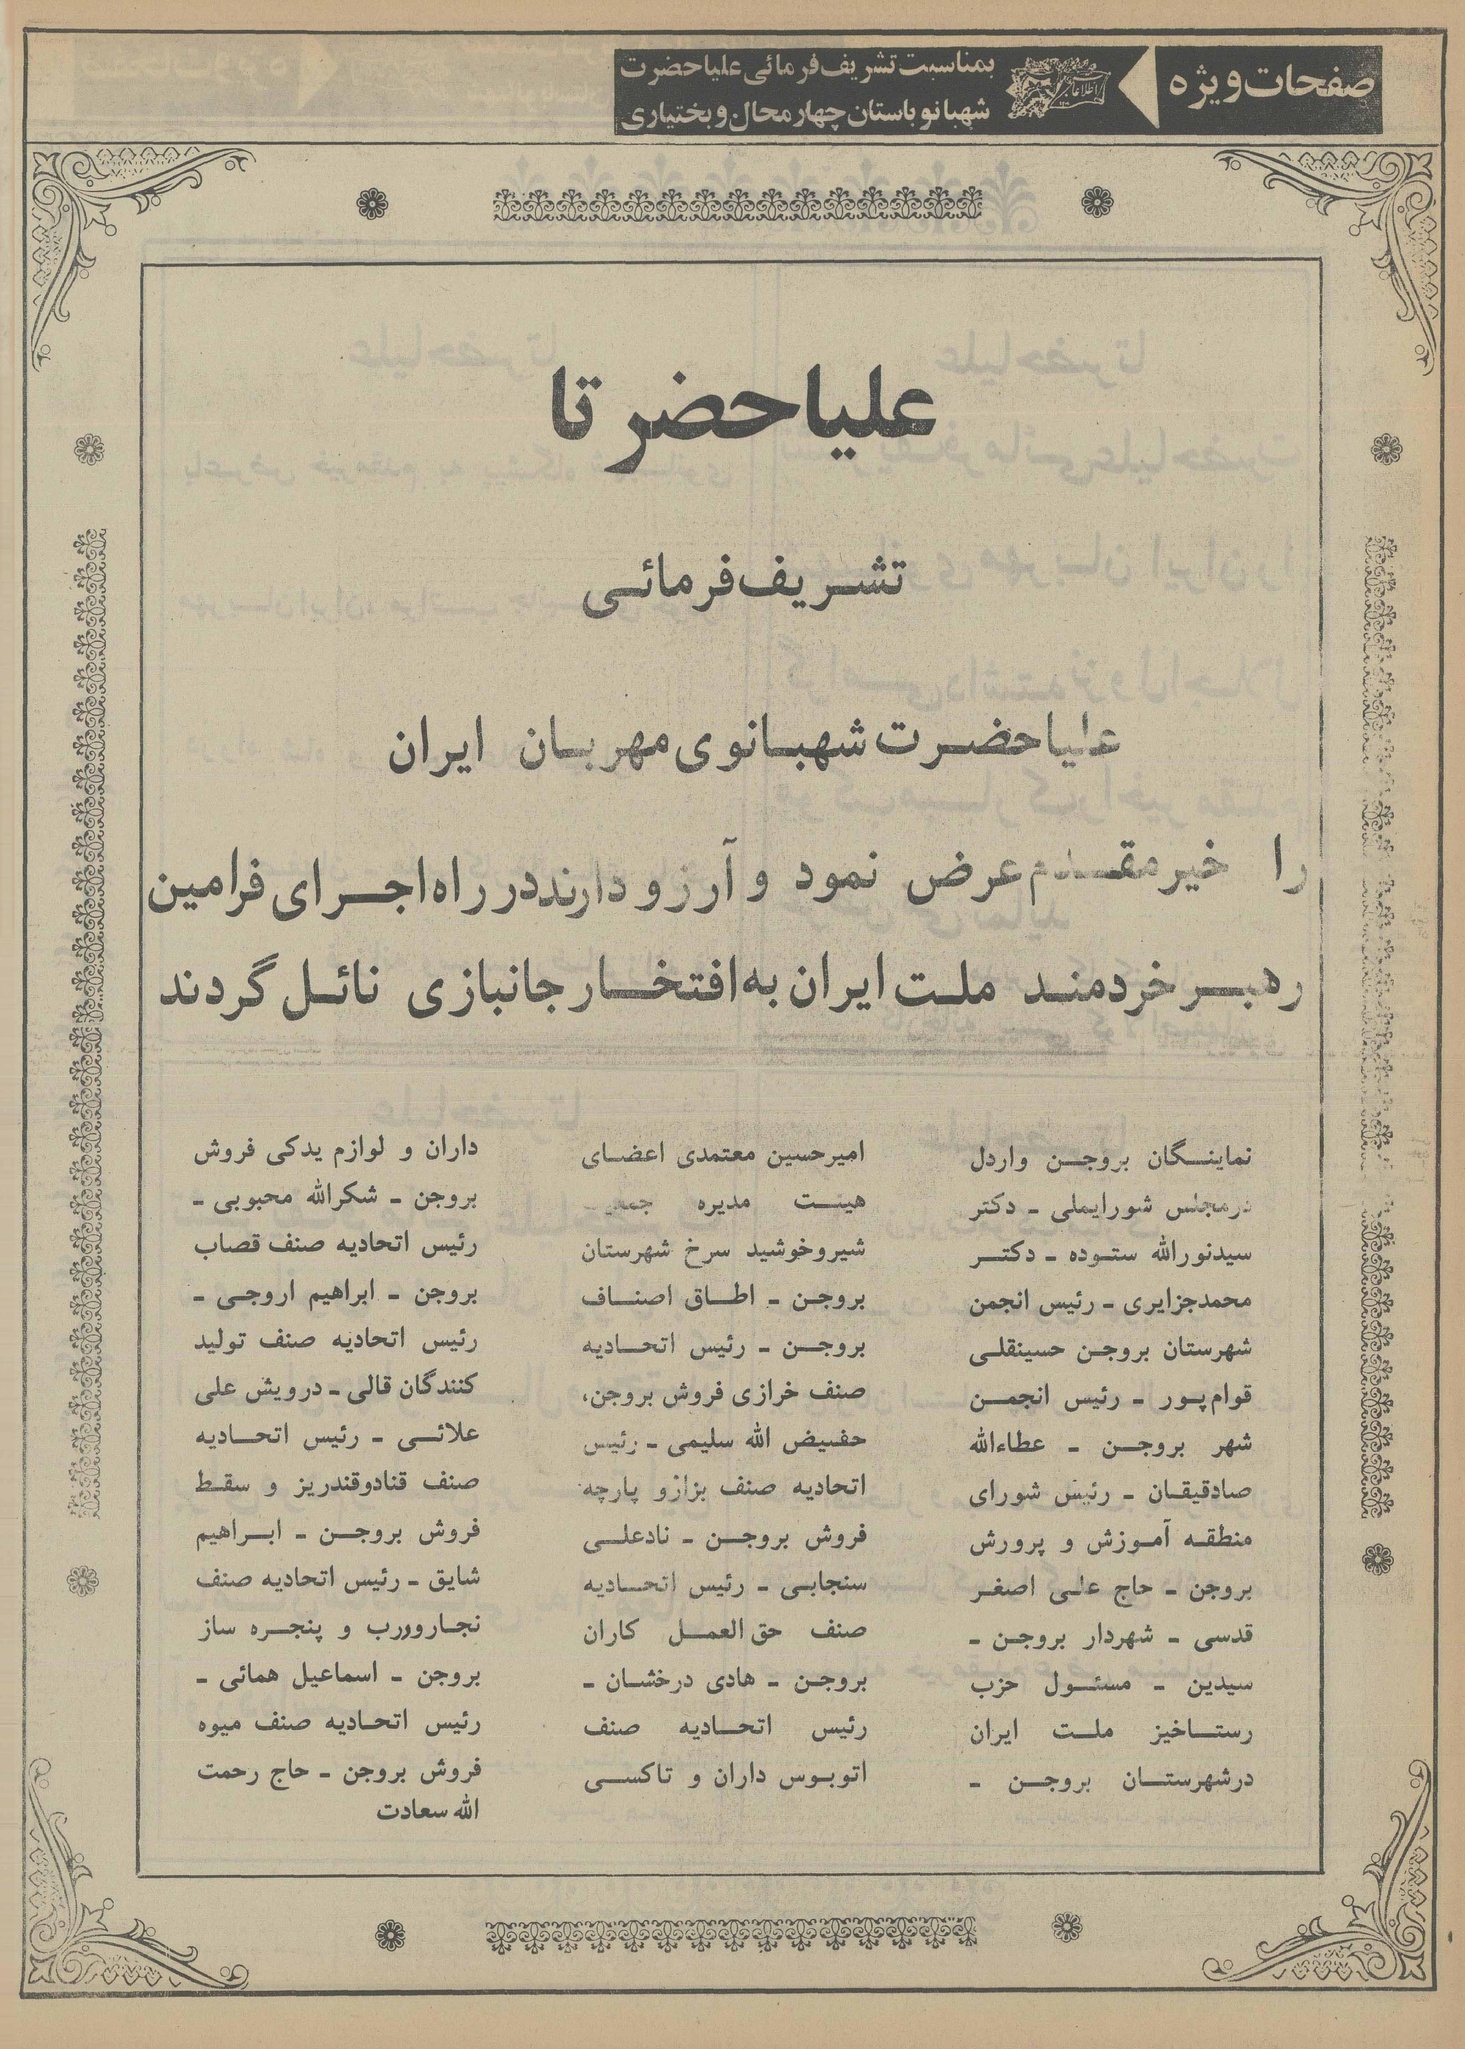 صفحات ویژه
بمناسبت تشریف فرمائی علیاحضرت
شهبانو باستان چهارمحال و بختیاری
اطلاعات
علیاحضرتا
تشریف فرمائی
علیاحضرت شهبانوی مهربان ایران
را خیرمقدم عرض نمود و آرزو دارند در راه اجرای فرامین
رهبر خردمند ملت ایران به افتخار جانبازی نائل گردند
نمایندگان بروجن واردل
درمجلس شورایملی ـ دکتر
سیدنورالله ستوده ـ دکتر
محمدجزایری ـ رئیس انجمن
شهرستان بروجن حسینقلی
قوام‌پور ـ رئیس انجمن
شهر بروجن ـ عطاءالله
صادقیقان ـ رئیس شورای
منطقه آموزش و پرورش
بروجن ـ حاج علی اصغر
قدسی ـ شهردار بروجن ـ
سیدین ـ مسئول حزب
رستاخیز ملت ایران
درشهرستان بروجن ـ
امیرحسین معتمدی اعضای
هیئت مدیره
شیروخوشید سرخ شهرستان
بروجن ـ اطاق اصناف
بروجن ـ رئیس اتحادیه
صنف خرازی فروش بروجن،
حفیض الله سلیمی ـ رئیس
اتحادیه صنف بزازو پارچه
فروش بروجن ـ نادعلی
سنجابی ـ رئیس اتحادیه
صنف حق العمل کاران
بروجن ـ هادی درخشان ـ
رئیس اتحادیه صنف
اتوبوس داران و تاکسی
داران و لوازم یدکی فروش
بروجن ـ شکرالله محبوبی ـ
رئیس اتحادیه صنف قصاب
بروجن ـ ابراهیم اروجی ـ
رئیس اتحادیه صنف تولید
کنندگان قالی ـ درویش علی
علائی ـ رئیس اتحادیه
صنف قنادوقندریز و سقط
فروش بروجن ـ ابراهیم
شایق ـ رئیس اتحادیه صنف
نجاروورب و پنجره ساز
بروجن ـ اسماعیل همائی ـ
رئیس اتحادیه صنف میوه
فروش بروجن ـ حاج رحمت
الله سعادت